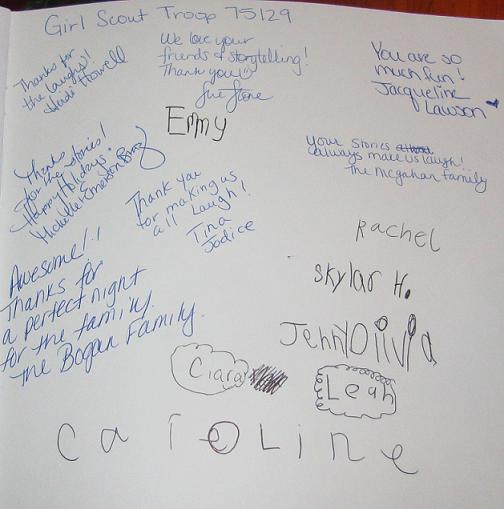 Girl Scout Troop 75129
Thanks for
the laughs!!
Heidi Howell
We love your
friends & storytelling!
Thank you!!
Sue Stone
You are so
much fun!
Jacqueline
Lawson
Emmy
Thanks
for the stories!
Happy Holidays!
Michelle Emerson
Thank you
for making us
all laugh!
Tina
Jodice
Your stories
always make us laugh!
The McGahan family
Rachel
Skylar H.
Awesome!!
Thanks for
a perfect night
for the family.
The Bogan Family.
Jenny Olivia
Ciara
Leah
Caroline